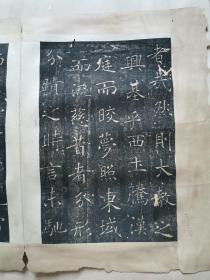 者哉然則大教之
興基乎西土騰漢
庭而皎夢照東域
而流慈昔者分形
分跡之時言未馳